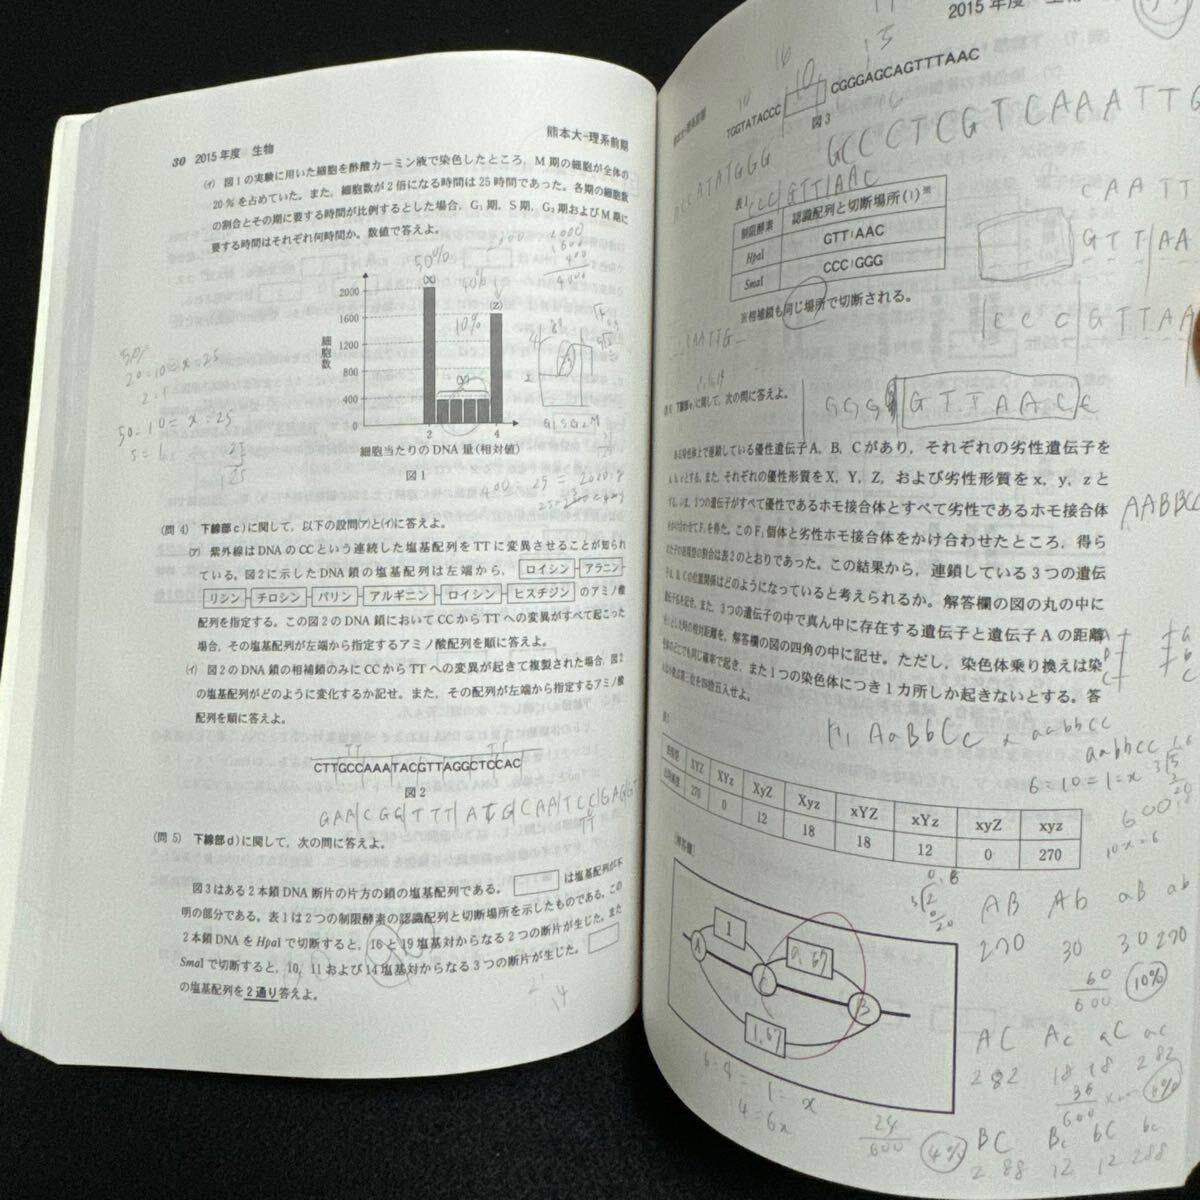 30 2015年度 生物
熊本大-理系前期
(イ) 図1の実験に用いた細胞を酢酸カーミン液で染色したところ,M期の細胞が全体の
20%を占めていた。また,細胞数が2倍になる時間は25時間であった。各期の細胞数
の割合とその期に要する時間が比例するとした場合,G₁期,S期,G₂期およびM期に
要する時間はそれぞれ何時間か。数値で答えよ。
50%
40%
10%
(X)
(Y)
(Z)
細胞数
2000
1600
1200
800
400
0
2
4
細胞当たりのDNA量(相対値)
図1
(問 4) 下線部c)に関して,以下の設問(ア)と(イ)に答えよ。
(ア) 紫外線はDNAのCCという連続した塩基配列をTTに変異させることが知られ
ている。図2に示したDNA鎖の塩基配列は左端から,ロイシン-アラニン-
リシン-チロシン-バリン-アルギニン-ロイシン-ヒスチジンのアミノ酸
配列を指定する。この図2のDNA鎖においてCCからTTへの変異がすべて起こった
場合,その塩基配列が左端から指定するアミノ酸配列を順に答えよ。
(イ) 図2のDNA鎖の相補鎖のみにCCからTTへの変異が起きて複製された場合,図2
の塩基配列がどのように変化するか記せ。また,その配列が左端から指定するアミノ酸
配列を順に答えよ。
TT TT
CTTGCCAAATACGTTAGGCTCCAC
図2
(問 5) 下線部d)に関して,次の問に答えよ。
図3はある2本鎖DNA断片の片方の鎖の塩基配列である。 は塩基配列が不
明の部分である。表1は2つの制限酵素の認識配列と切断場所を示したものである。この
2本鎖DNAをHpaIで切断すると,16と19塩基対からなる2つの断片が生じた。また
SmaIで切断すると,10,11および14塩基対からなる3つの断片が生じた。
の塩基配列を2通り答えよ。
2015年度 生物
熊本大-理系前期
TGGTATACCC 10 CGGGAGCAGTTTAAC
図3
GCCCTCGTCAAATTG
表1
制限酵素 認識配列と切断場所(|)※
HpaI GTT|AAC
SmaI CCC|GGG
※相補鎖も同じ場所で切断される。
CAATT
GTT|AA
CCC|GTTAA
CAATTG
下線部e)に関して,次の問に答えよ。
GGG GTTAACC
ある染色体上で連鎖している優性遺伝子A,B,Cがあり,それぞれの劣性遺伝子を
a,b,cとする。また,それぞれの優性形質をX,Y,Z,および劣性形質をx,y,zと
する。いま,3つの遺伝子がすべて優性であるホモ接合体とすべて劣性であるホモ接合体
をかけ合わせてF₁を得た。このF₁個体と劣性ホモ接合体をかけ合わせたところ,得ら
れた子の表現型の割合は表2のとおりであった。この結果から,連鎖している3つの遺伝
子A,B,Cの位置関係はどのようになっていると考えられるか。解答欄の図の丸の中に
遺伝子名を記せ。また,3つの遺伝子の中で真ん中に存在する遺伝子と遺伝子Aの距離
を1とした時の相対距離を,解答欄の図の四角の中に記せ。ただし,染色体乗り換えは染
色体のどこでも同じ確率で起き,また1つの染色体につき1カ所しか起きないとする。答
AABBCC
F₁ AaBbCc × aabbcc
aabbcc
6:10=1:x
10x=6
XYZ XYz XyZ Xyz xYZ xYz xyZ xyz
270 0 12 18 18 12 0 270
(解答欄)
A
1
C
0.67
B
1.67
AB Ab aB ab
270 30 30 270
60
600
10%
AC Ac aC ac
282 18 18 282
36
600
BC Bc bC bc
288 12 12 288
24
600
4%
6:4=1:x
4=6x